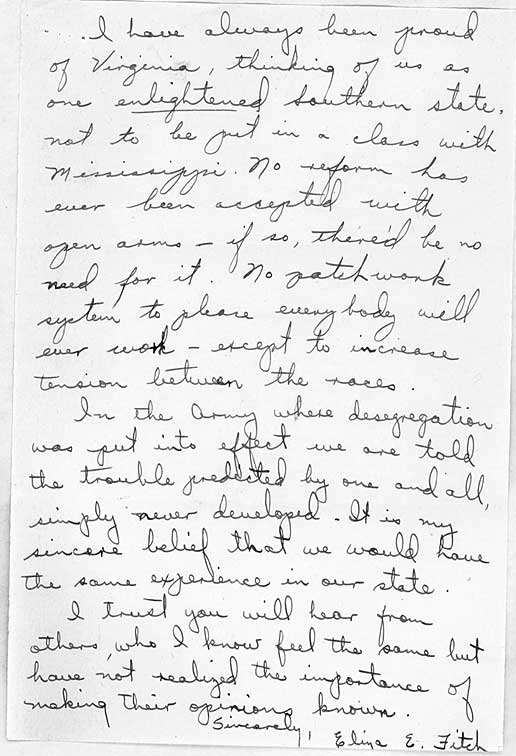 ....I have always been proud
of Virginia, thinking of us as
one enlightened southern state,
not to be put in a class with
Mississippi. No reform has
ever been accepted with
open arms – if so, there'd be no
need for it. No patchwork
system to please everybody will
ever work – except to increase
tension between the races.
In the Army where desegregation
was put into effect we are told
the trouble predected by one and all,
simply never developed. It is my
sincere belief that we would have
the same experience in our state.
I trust you will hear from
others, who I know feel the same but
have not realized the importance of
making their opinions known.
Sincerely,
Elina E. Fitch